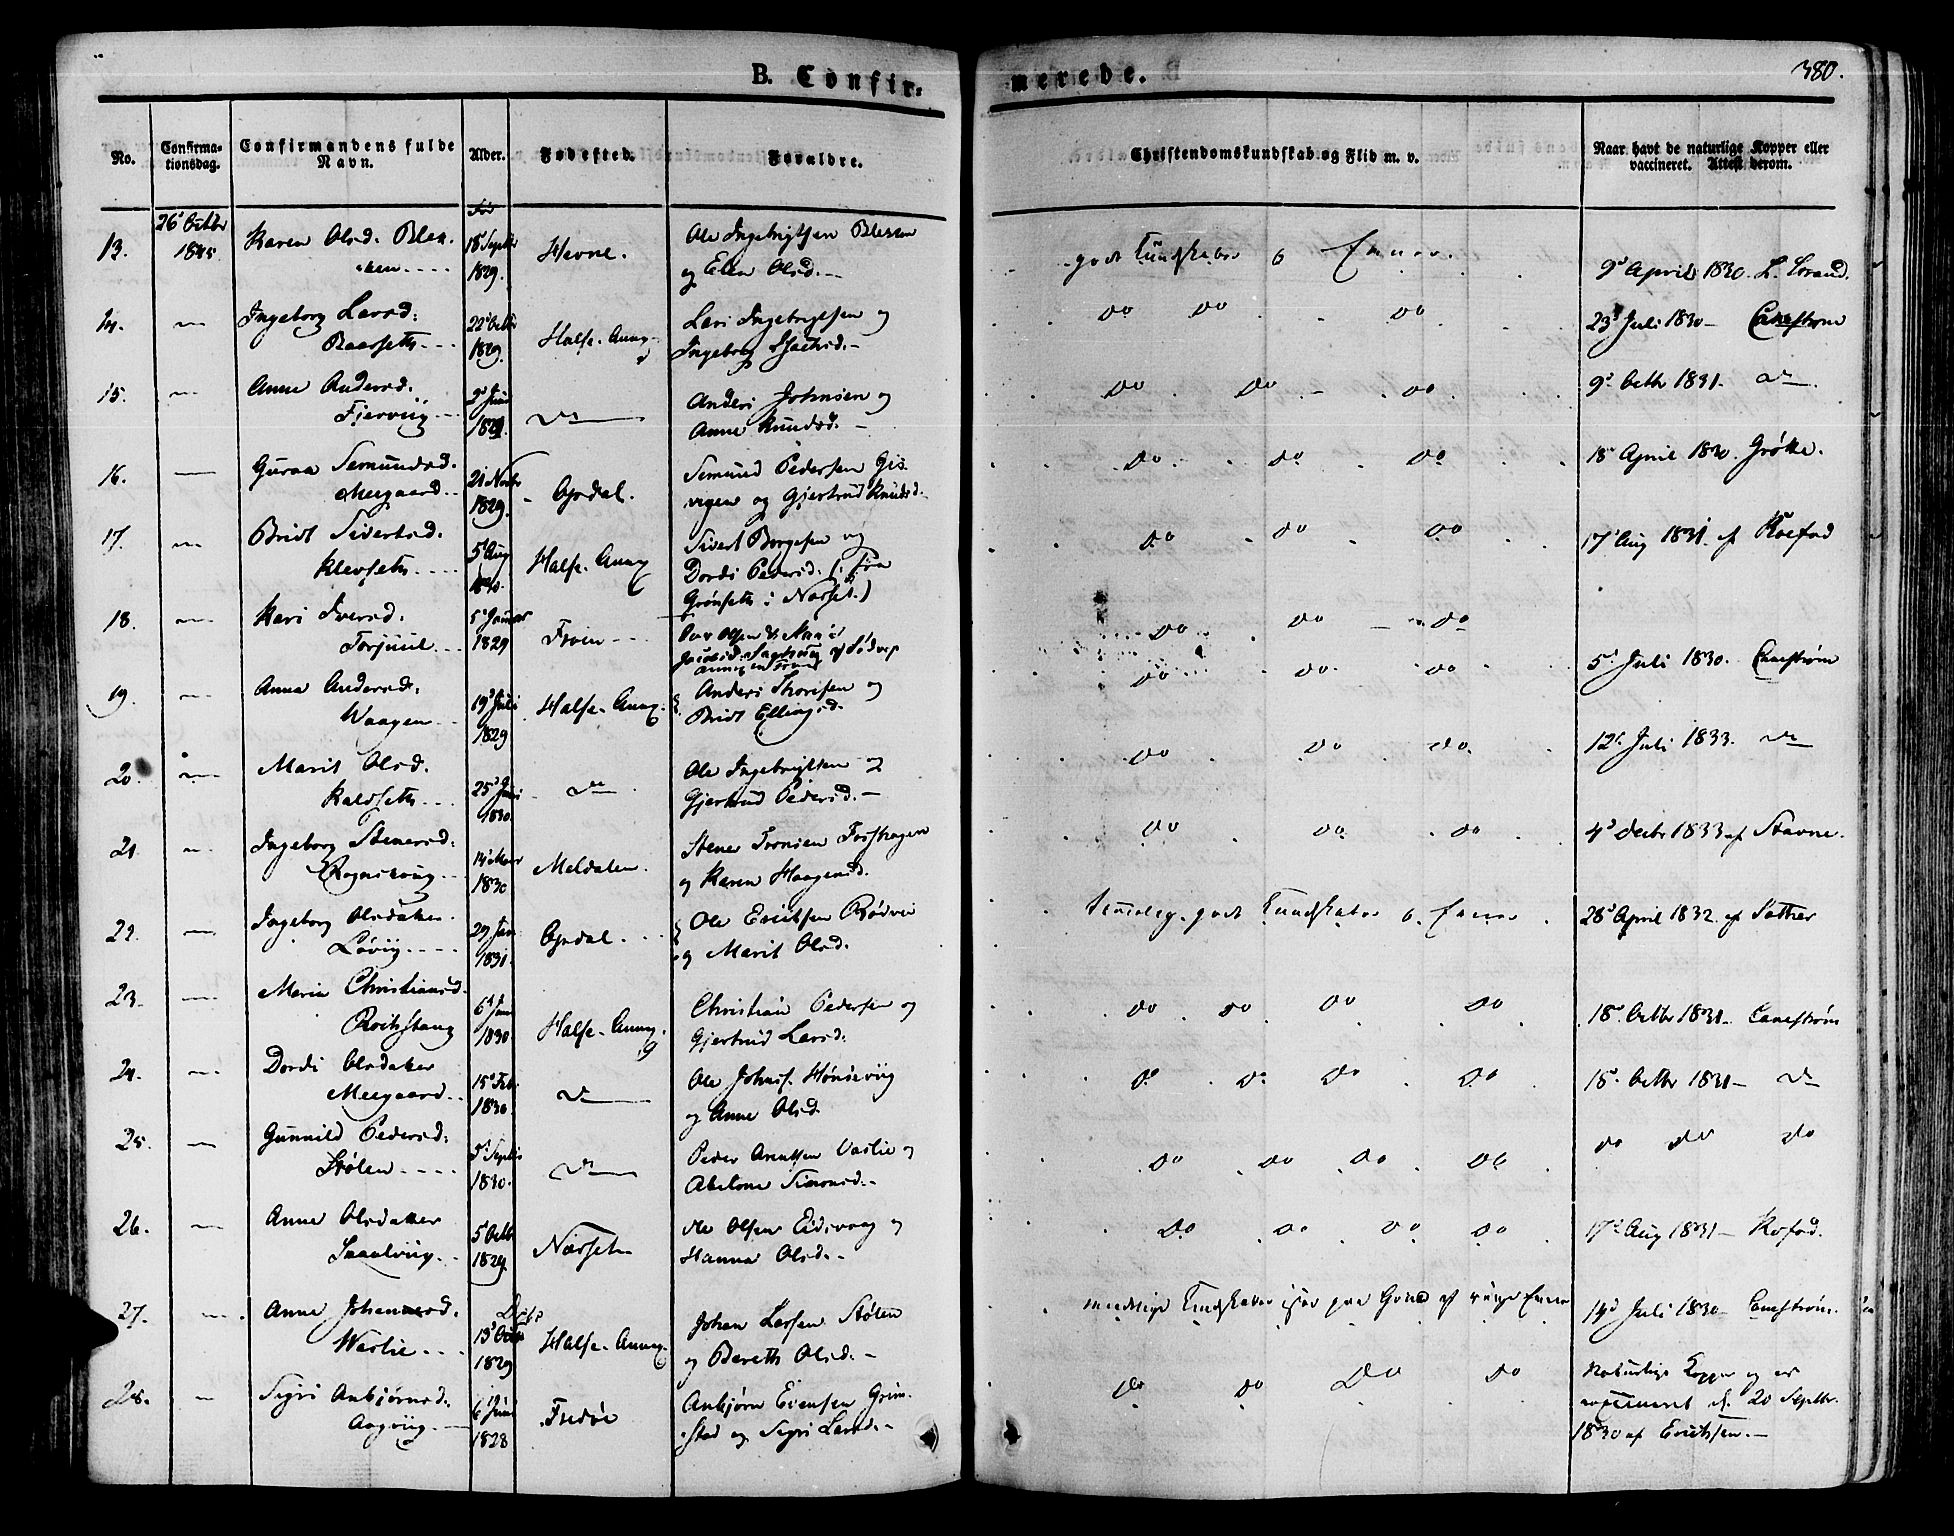 B. Confir-
merede.
380.
No.
Confirma-
tionsdag.
Confirmandens fulde
Navn.
Alder.
Fødested.
Forældre.
Christendomskundskab og Flid m. v.
Naar havt de naturlige Kopper eller
vaccineret. Attest herom.
13. 26d Octbr 1845 Karen Olsd. Blek-
ken 18d Septbr 1829. Hevne. Ole Ingebrigtsen Blekken
og Elen Olsd.
godt Kundskaber o Evner. 9d April 1830. L. Strand.
14. Ingeborg Larsd:
Baarseth 22d Octbr 1829. Halse Annex Lars Ingebrigtsen og
Ingeborg
do do do 23d Juli 1830 Canestrøm
15. Anne Andersd.
Fjerviig 2d Juni 1829. do Anders Johnsen og
Anne Knudsd.
do do do 9d Octbr 1831. do
16. Guroe Semundsd.
Meegaard 21d Novbr 1829. Opdal. Semund Pedersen
og Gjertrud Knudsd.
do do do 18d April 1830. Grøtte.
17. Bridt Sivertsd.
Klevseth 5d Aug 1830. Halse Annex Sivert Borgesen og
Dordi Pedersd. (Fra
Grønseth i Nørset.)
do do do 17d Aug 1831. af Koefod
18. Kari Iversd.
Torjuul 5d Januar 1829 Froen
do do do
19. Anne Andersd:
Waagen 19d Juli 1829 Halse Annex. Anders Thorisen og
Bridt Ellingsd.
do do do 5d Juli 1830. Canestrøm
20. Marit Olsd.
Kaldseth 25d Juni 1830. do Ole Ingebrigtsen og
Gjertrud Pedersd.
do do do 12d Juli 1833. do
21. Ingeborg Stenersd:
14d Mar 1830 Meldalen Stener Tronsen
og Karen Haagensd.
do do do 4d Decbr 1833 af Stavne.
22. Ingeborg Olsdatter
Løviig 29 Jan 1831. Opdal. Ole Erichsen
og Marit Olsd.
temmelig godt Kundskaber o. Evner 28d April 1832. af Sæther
23. Maria Christiansd.
Rochstang 6d Jan 1830 Halse Annex. Christian Pedersen og
Gjertrud Larsd:
do do do do 18d Octbr 1831 Canestrøm
24. Dordi Olsdatter
Meegaard 15d Feb 1830. do Ole Johns. Hønseviig
og Anne Olsd.
do do do do 18d Octbr 1831 do
25. Gunnild Pedersd:
Stølen 5d Septbr 1830. do Peder Arentsen Vaslie og
Abelone Simonsd.
do do do do do do do
26. Anne Olsdatter
5d Octbr 1829. Nørset Ole Olsen Eidsvaag og
Hanna Olsd.
do do do do 17d Aug 1831 Kofod.
27. Anne Johannesd.
Waslie 13d Decbr 1829 Halse Annex. Johan Larsen Stølen
og Bereth Olsd.
maadelige Kundskaber især paa Grund af ringe Evner 14d Juli 1830 Canestrøm.
28. Sigri Anbjørnsd.
Aagviig 6d Juni 1828 Fredøe Anbjørn Evensen Grim-
stad og Sigri Larsd.
do do do do Naturlige Kopper og er
vaccineret d. 20 Septbr.
1830 af Erichsen.